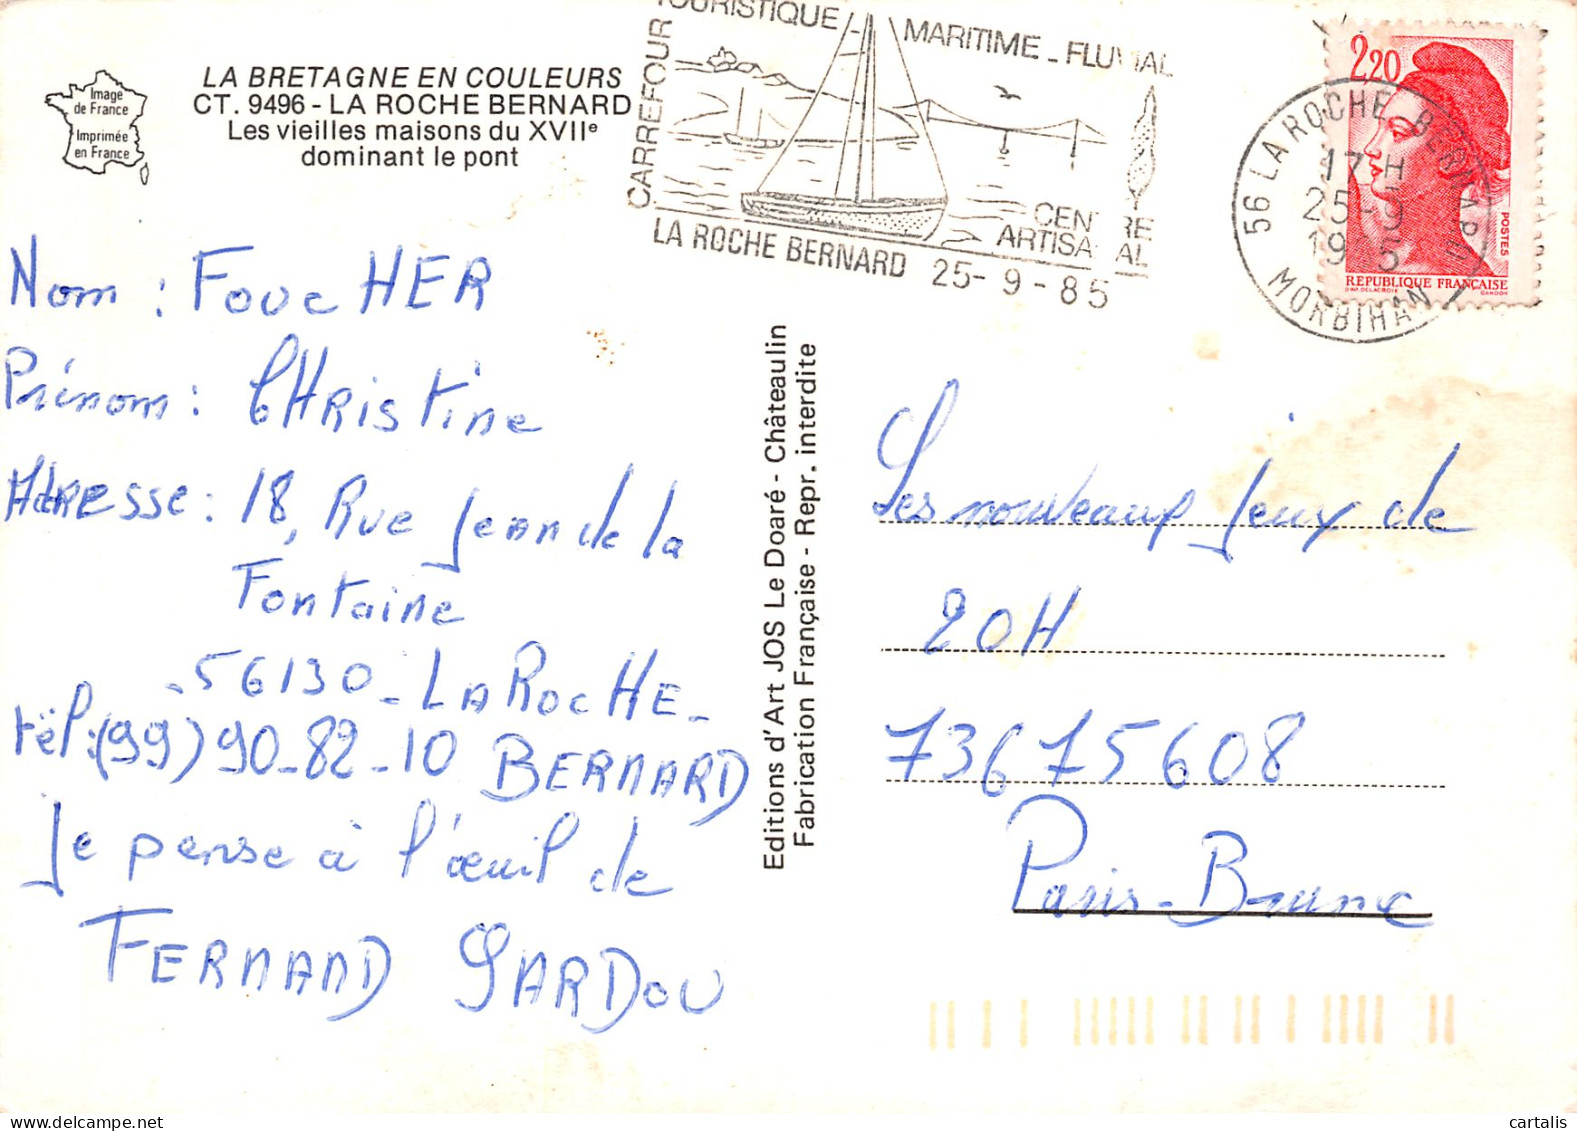 LA BRETAGNE EN COULEURS
CT. 9496 - LA ROCHE BERNARD
Les vieilles maisons du XVIIe
dominant le pont
Image
de France
Imprimée
en France
TOURISTIQUE
MARITIME - FLUVIAL
CARREFOUR
CENTRE
ARTISANAL
LA ROCHE BERNARD 25-9-85
56 LA ROCHE BERNARD
17 H
25-9
19 5
MORBIHAN
2,20
POSTES
RÉPUBLIQUE FRANÇAISE
D'AP. DELACROIX GANDON
Nom : FoucHER
Prénom : CHRistine
AdRESSE : 18, Rue Jean de la
Fontaine
-56130 - LA RocHE -
tël : (99) 90-82-10 BERNARD
Je pense à l'œuil de
FERNAND SARDOU
Editions d'Art JOS Le Doaré - Châteaulin
Fabrication Française - Repr. interdite
Les nouveaup Jeux de
20H
73675608
Paris-Brune
cartalis